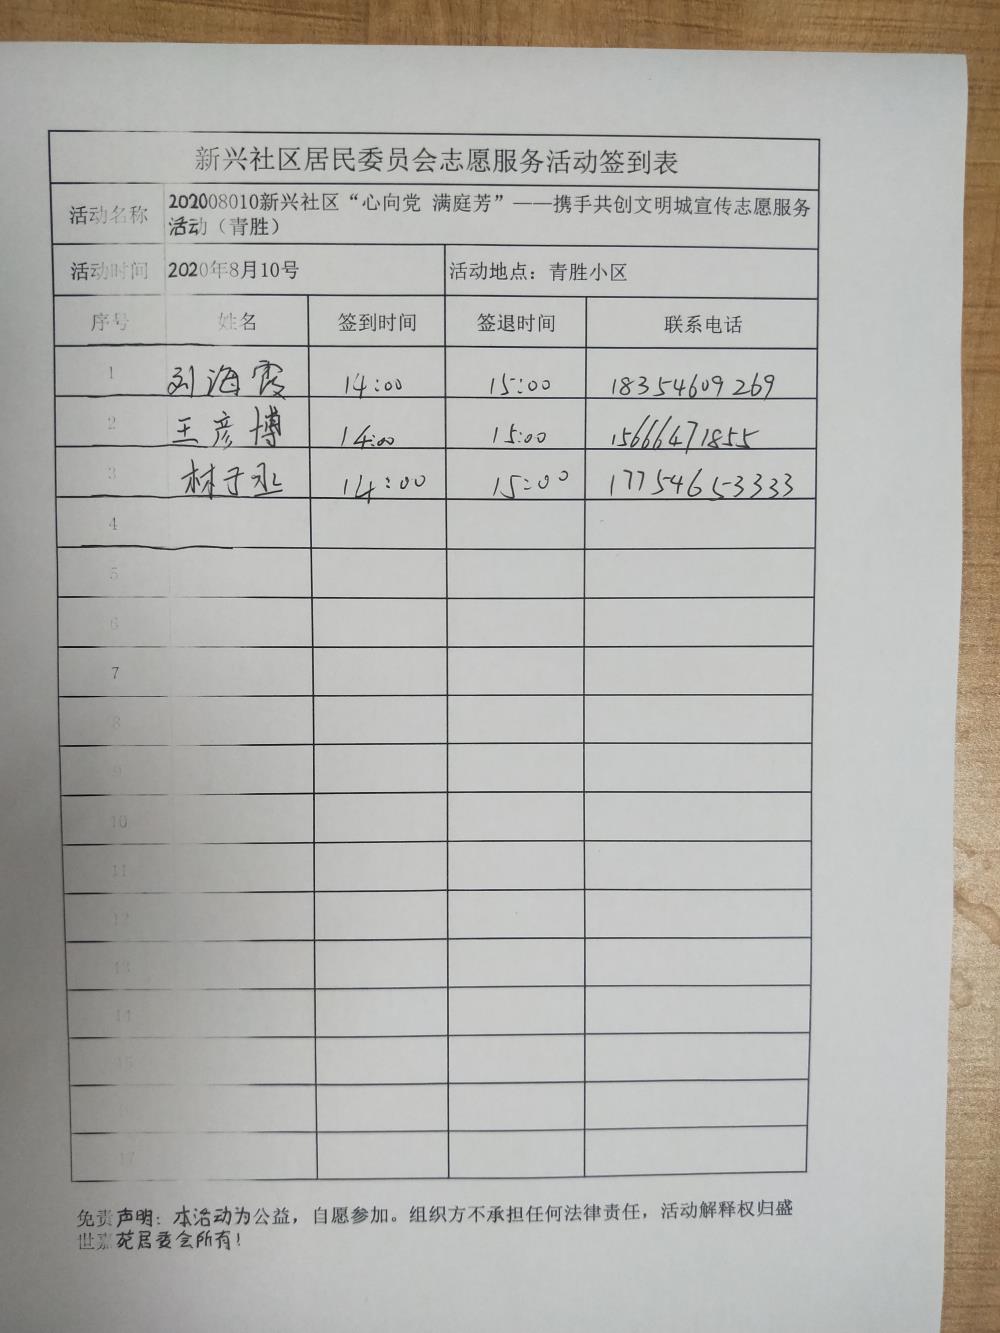 新兴社区居民委员会志愿服务活动签到表
活动名称 202008010新兴社区“心向党 满庭芳”——携手共创文明城宣传志愿服务
活动（青胜）
活动时间 2020年8月10号 活动地点：青胜小区
序号 姓名 签到时间 签退时间 联系电话
1 刘海霞 14:00 15:00 18354609269
2 王彦博 14:00 15:00 15666471855
3 林子丞 14:00 15:00 17754653333
4
5
6
7
8
9
10
11
12
13
14
15
16
17
免责声明：本活动为公益，自愿参加。组织方不承担任何法律责任，活动解释权归盛
世嘉苑居委会所有！